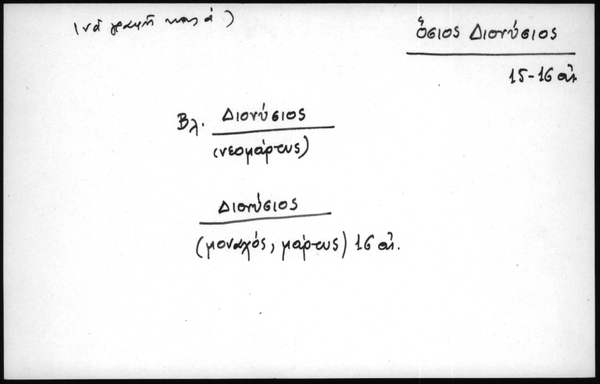 (νὰ γραφῆ
Ὅσιος Διονύσιος
15-16 αἰ.
Βλ. Διονύσιος
(νεομάρτυς)
Διονύσιος
(μοναχός, μάρτυς) 16 αἰ.